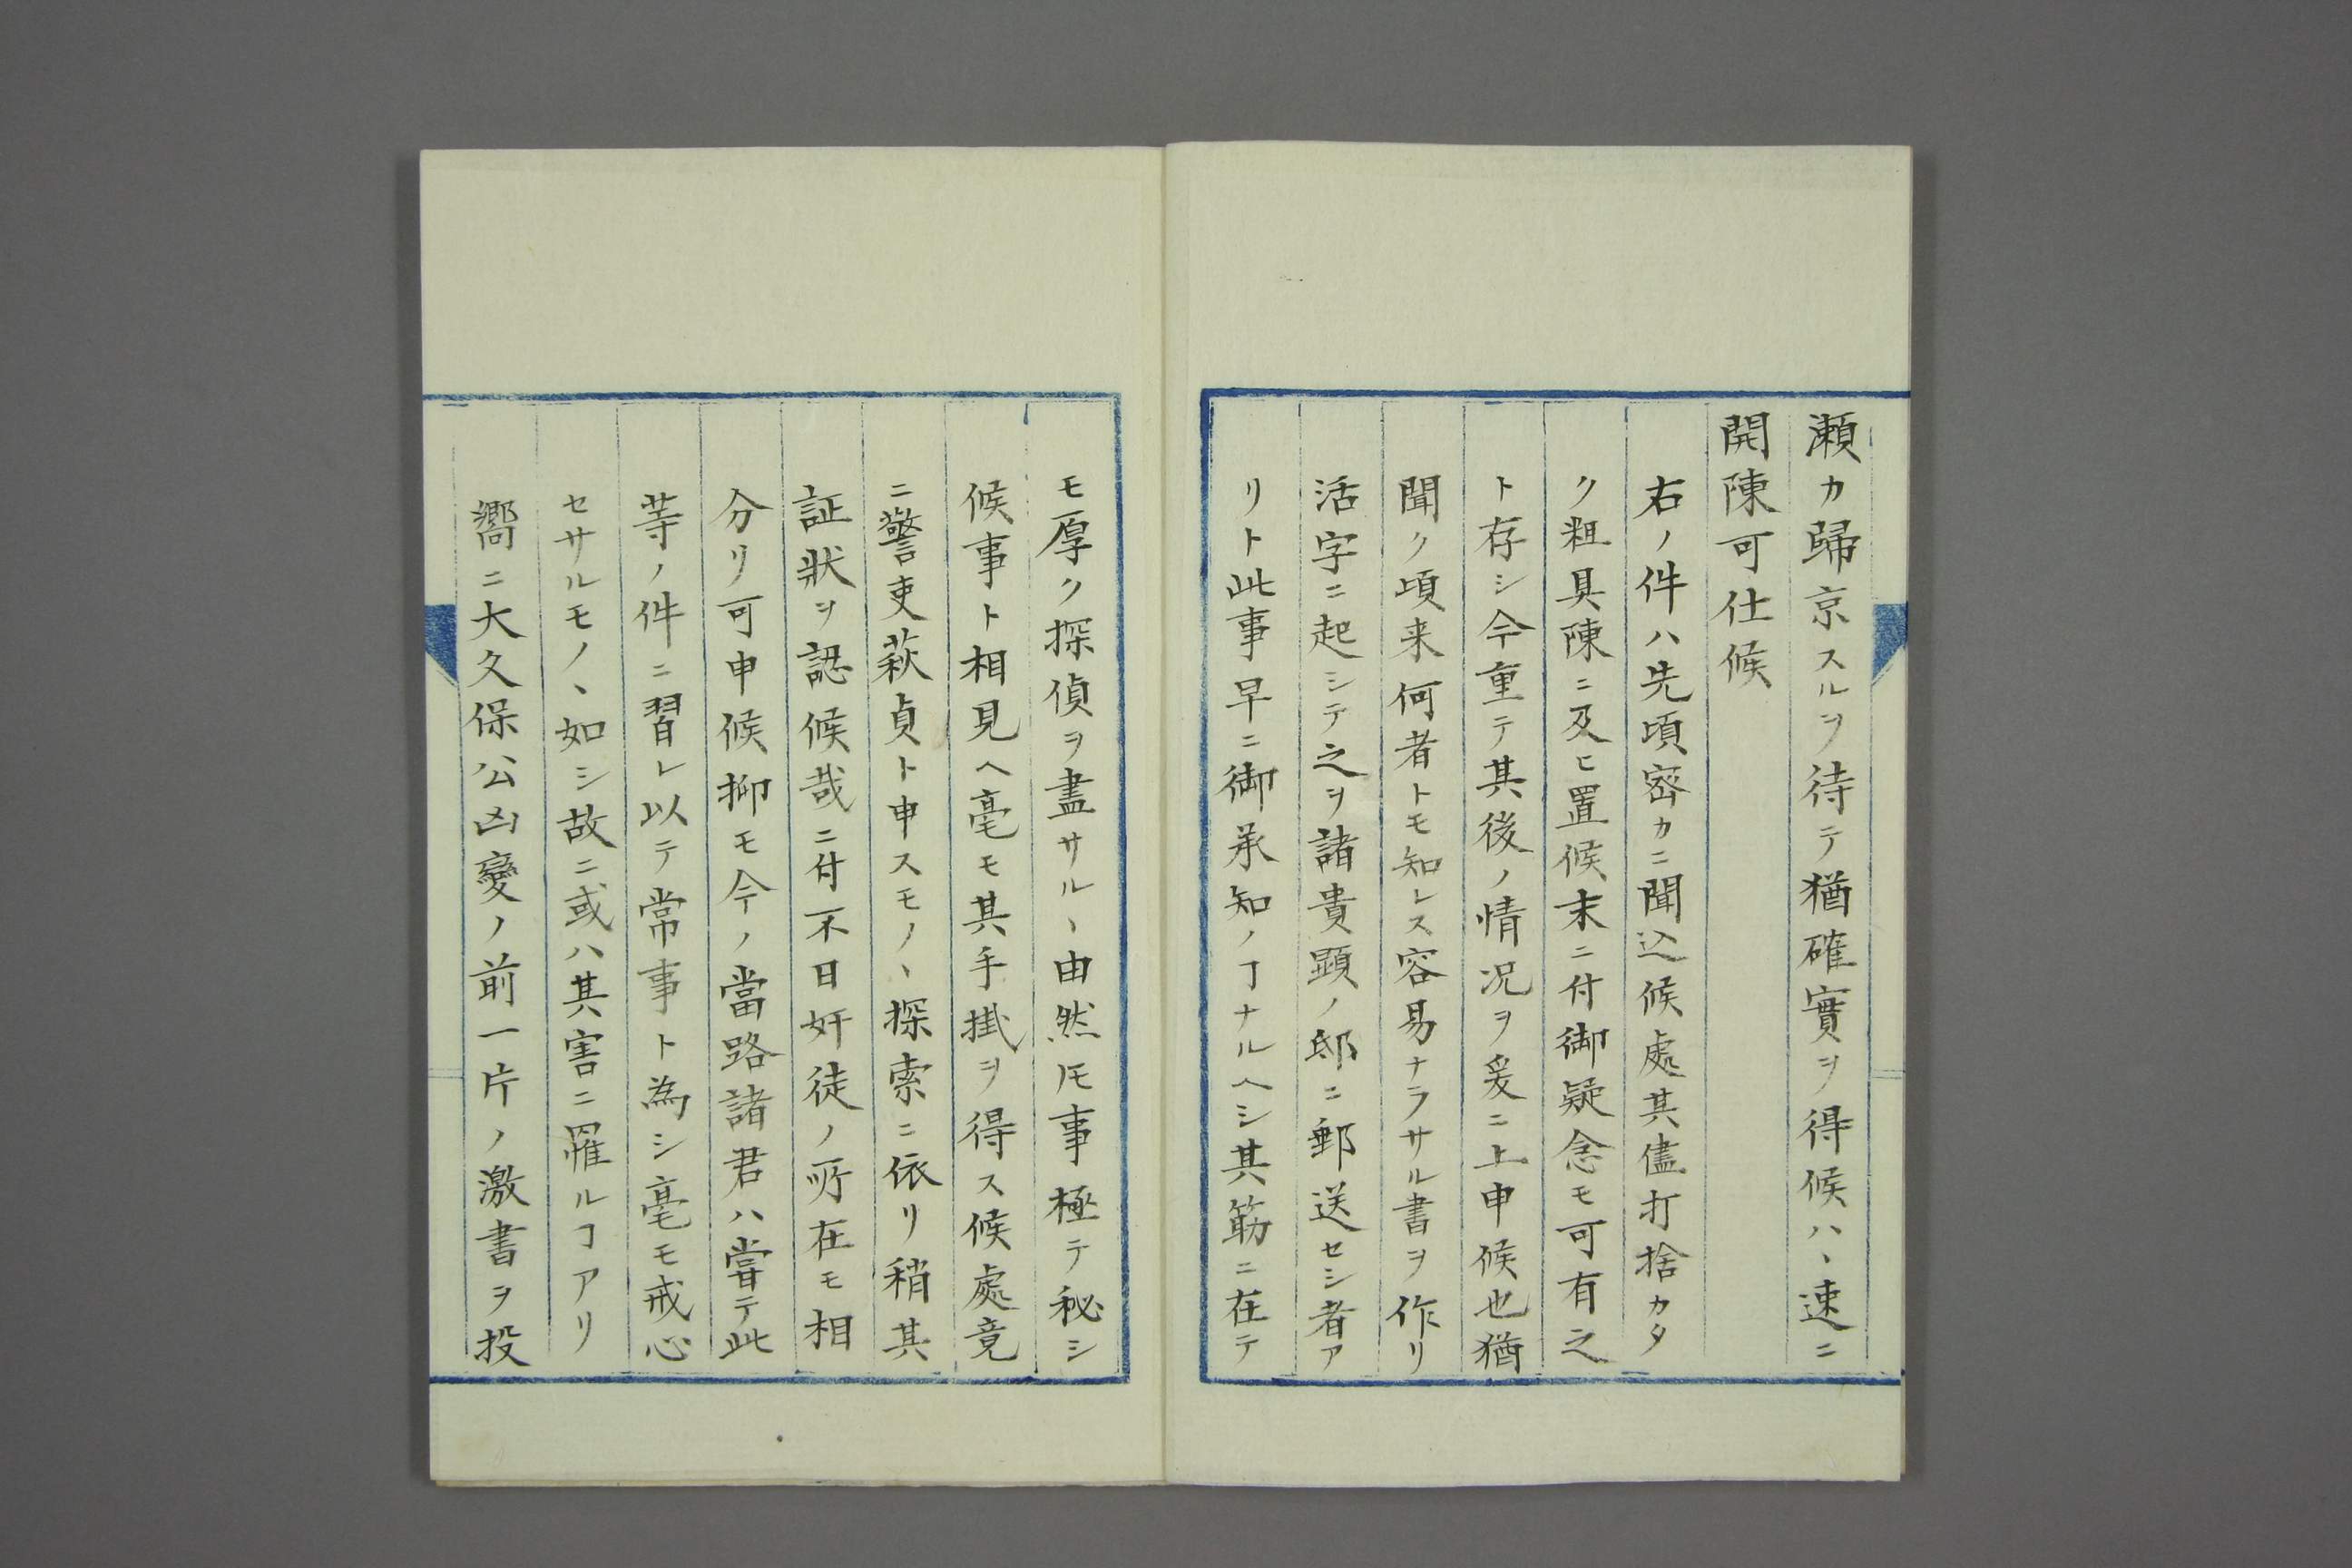 瀬カ歸京スルヲ待テ猶確實ヲ得候ハヽ速ニ
開陳可仕候
右ノ件ハ先頃密カニ聞込候處其儘打捨カタ
ク粗具陳ニ及ヒ置候末ニ付御疑念モ可有之
ト存シ今重テ其後ノ情况ヲ爰ニ上申候也猶
聞ク頃来何者トモ知レス容易ナラサル書ヲ作リ
活字ニ起シテ之ヲ諸貴顕ノ邸ニ郵送セシ者ア
リト此事早ニ御承知ノヿナルヘシ其筋ニ在テ
モ厚ク探偵ヲ盡サルヽ由然ㇳモ事極テ秘シ
候事ト相見ヘ毫モ其手掛ヲ得ス候處竟
ニ警吏萩貞ト申スモノヽ探索ニ依リ稍其
証狀ヲ認候哉ニ付不日奸徒ノ所在モ相
分リ可申候抑モ今ノ當路諸君ハ嘗テ此
等ノ件ニ習レ以テ常事ト為シ毫モ戒心
セサルモノヽ如シ故ニ或ハ其害ニ罹ルヿアリ
嚮ニ大久保公凶變ノ前一片ノ激書ヲ投